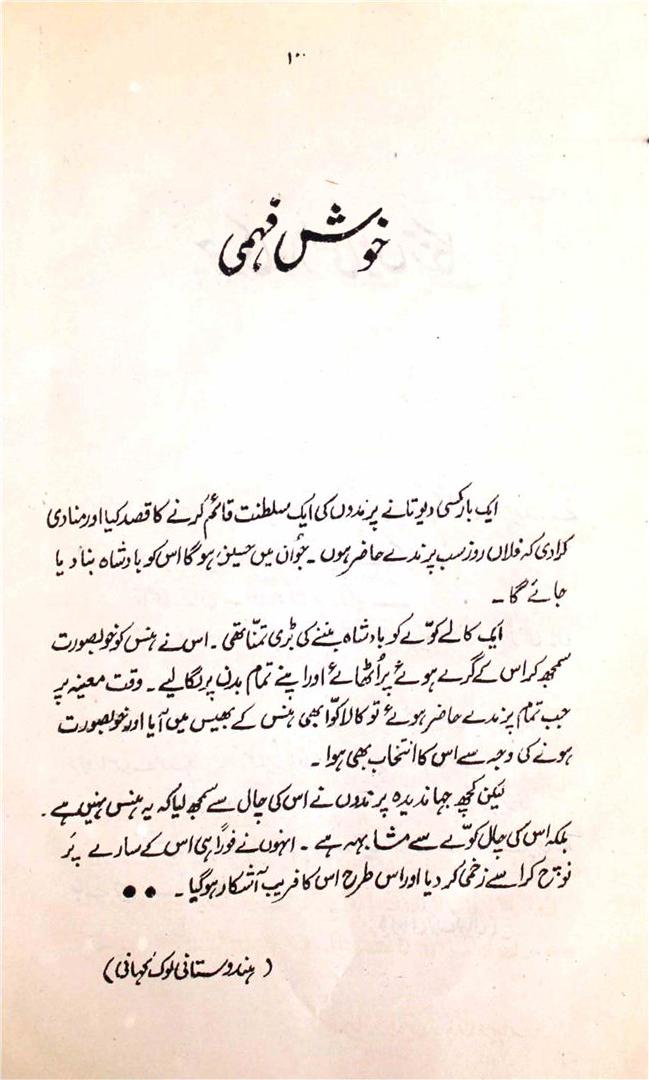 ۱۰۰
خوش فہمی
ایک بار کسی دیوتا نے پرندوں کی ایک سلطنت قائم کرنے کا قصد کیا اور منادی
کرادی کہ فلاں روز سب پرندے حاضر ہوں ۔ جو اُن میں حسین ہوگا اس کو بادشاہ بنا دیا
جائے گا ۔
ایک کالے کوّے کو بادشاہ بننے کی بڑی تمنّا تھی ۔ اس نے ہنس کو خوبصورت
سمجھ کر اس کے گرے ہوئے پَر اُٹھائے اور اپنے تمام بدن پر لگا لیے ۔ وقت معینہ پر
جب تمام پرندے حاضر ہوئے تو کالا کوّا بھی ہنس کے بھیس میں آیا اور خوبصورت
ہونے کی وجہ سے اس کا انتخاب بھی ہوا ۔
لیکن کچھ جہاندیدہ پرندوں نے اس کی چال سے سمجھ لیا کہ یہ ہنس نہیں ہے ۔
بلکہ اس کی چال کوّے سے مشابہہ ہے ۔ انہوں نے فوراً ہی اس کے سارے پَر
نوچ کر اسے زخمی کر دیا اور اس طرح اس کا فریب آشکار ہوگیا ۔ ●●
(ہندوستانی لوک کہانی)